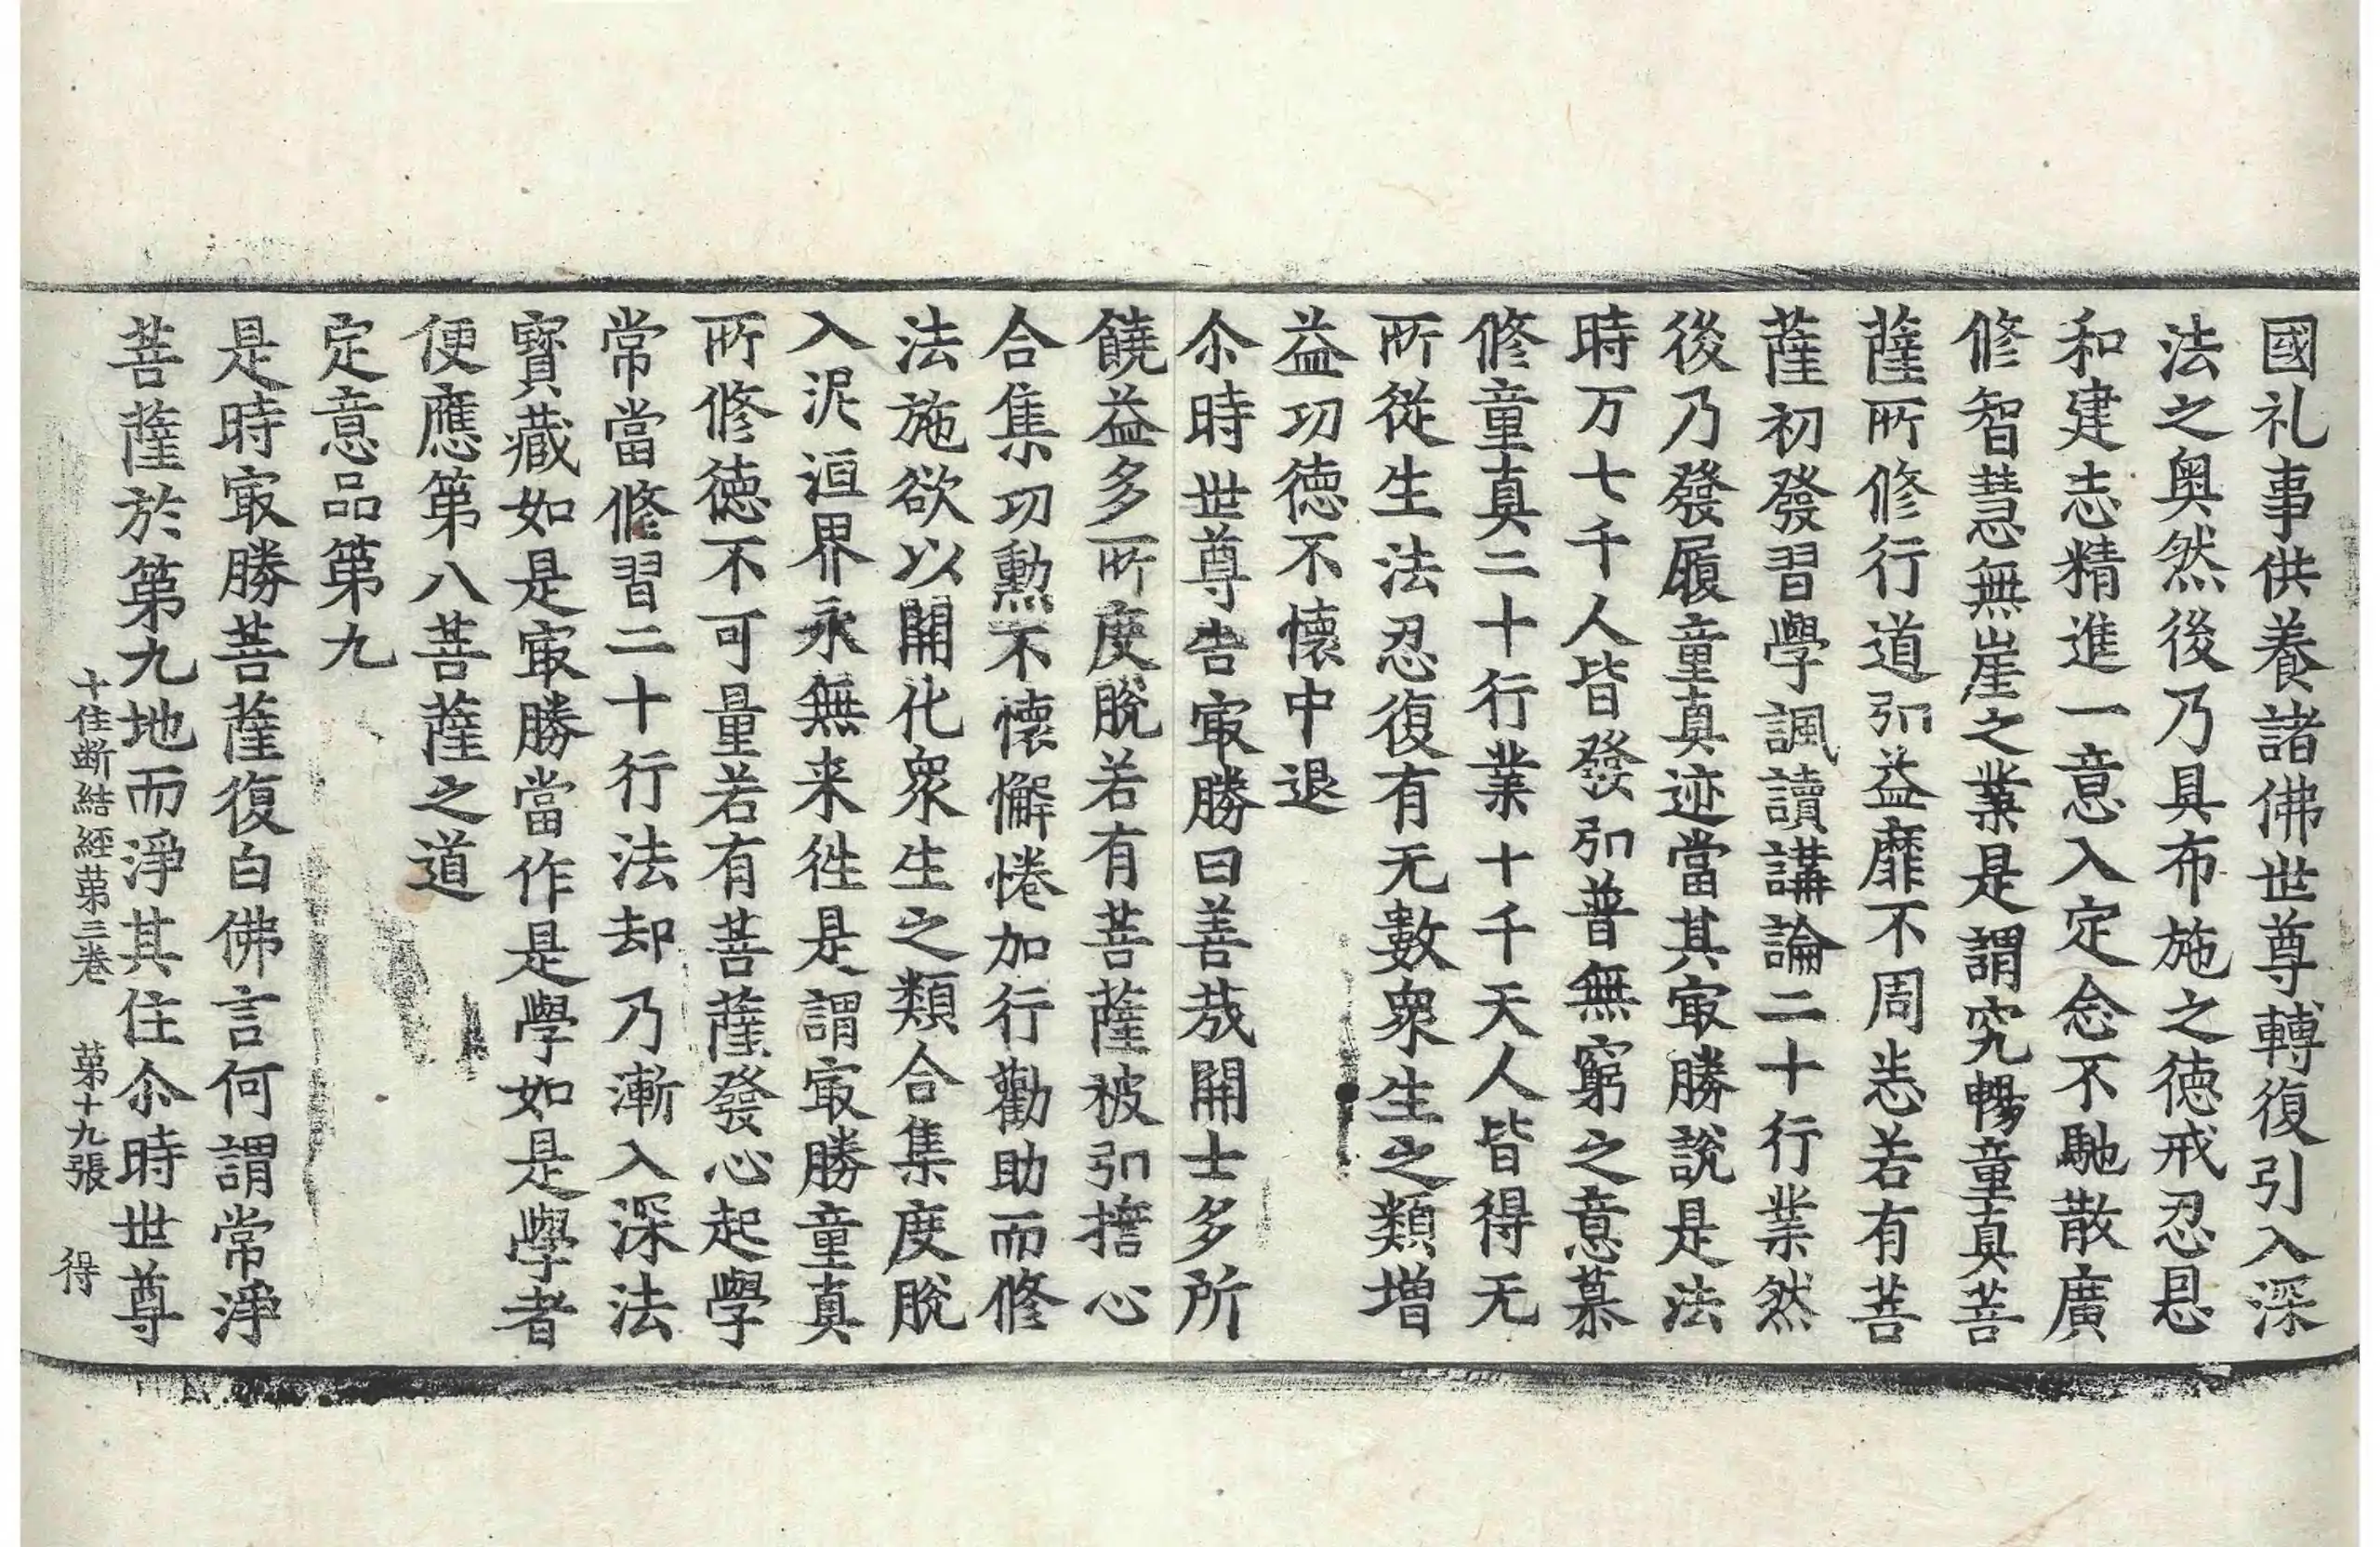 國礼事供養諸佛世尊轉復引入深
法之奥然後乃具布施之德戒忍忍
和建志精進一意入定念不馳散廣
修智慧無崖之業是謂究暢童真菩
薩所修行道弘益靡不周恙若有菩
薩初發習學諷讀講論二十行業然
後乃發履童真迹當其冣勝說是法
時万七千人皆發弘普無窮之意慕
修童真二十行業十千天人皆得无
所從生法忍復有无數衆生之類增
益功德不懷中退
尒時世尊告冣勝曰善哉開士多所
饒益多所度脫若有菩薩被弘擔心
合集功勲不懷懈惓加行勸助而修
法施欲以開化衆生之類合集度脫
入泥洹界永無来徃是謂冣勝童真
所修德不可量若有菩薩發心起學
常當修習二十行法却乃漸入深法
寶藏如是冣勝當作是學如是學者
便應第八菩薩之道
定意品第九
是時冣勝菩薩復白佛言何謂常淨
菩薩於第九地而淨其住尒時世尊
十住斷結經苐三卷 苐十九張 得